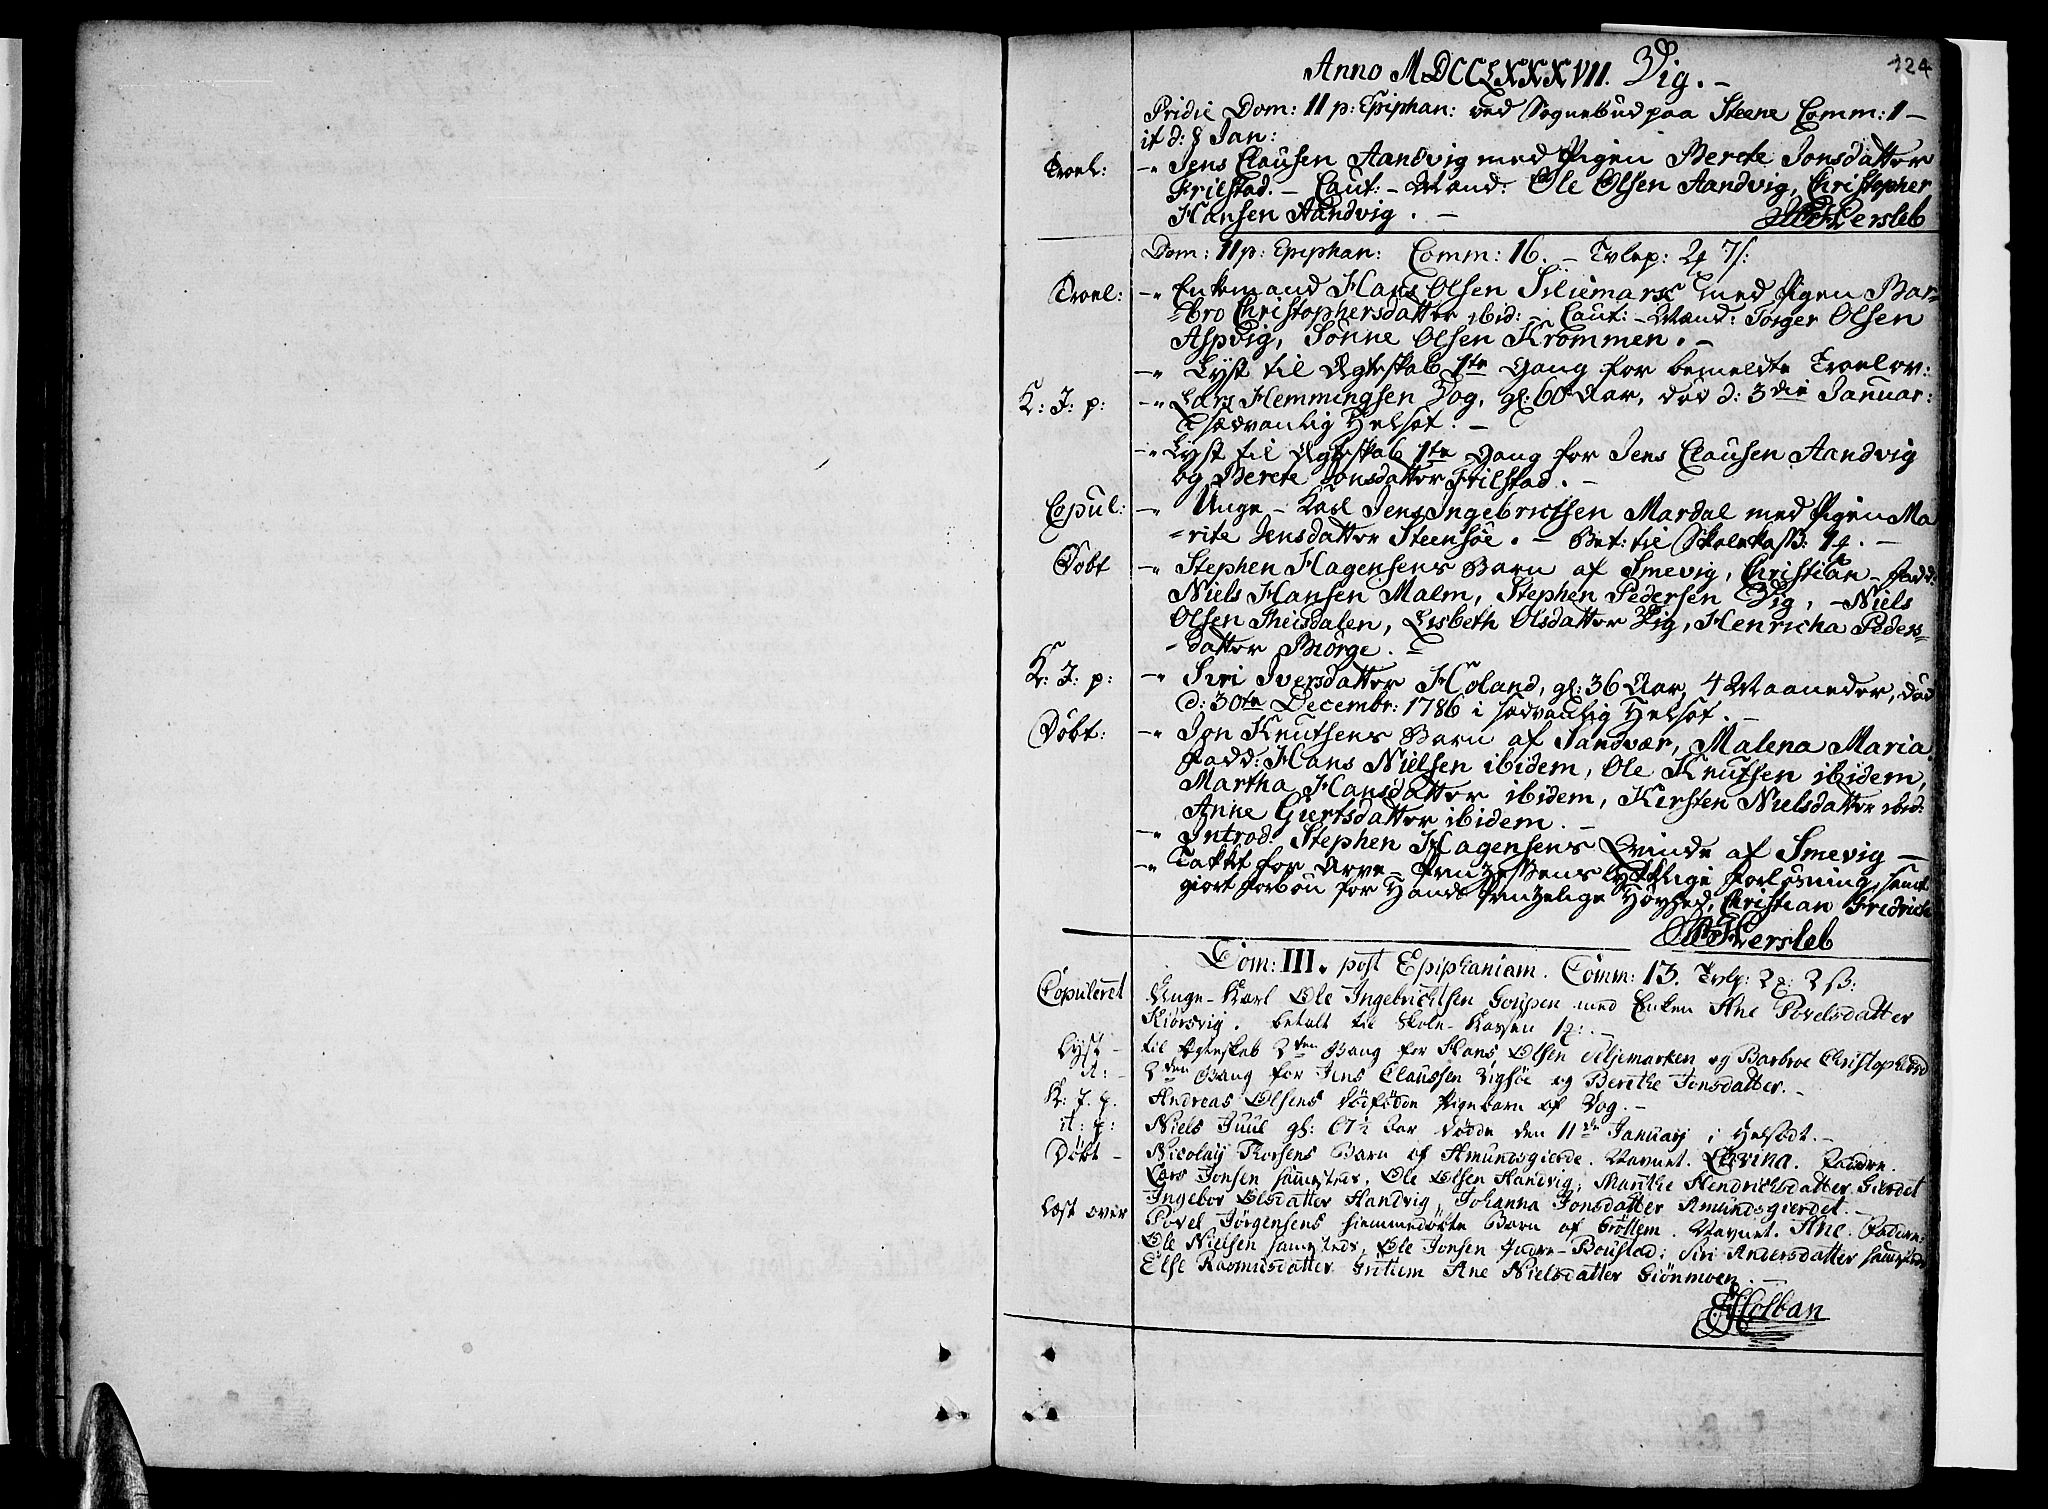 124
Anno MDCCLXXXVII. Vig. -
Pridie Dom: II p: Epiphan: ved Sognebud paa Steene Comm: 1 -
it d: 8 Jan:
Troel: -" Jens Clausen Aandvig med Pigen Berete Jonsdatter
Frilstad. - Caut: - Mænd: Ole Olsen Aandvig, Christopher
Hansen Aandvig. - Hersleb
Dom: II p: Epiphan: Comm: 16. - Tvlep:
Troel: -" Enkemand Hans Olsen Siliemark med Pigen Bar-
-bro Christophersdatter ibid: - Caut: - Mænd: Torger Olsen
Aspvig, Sonne Olsen Krommen. -
-" Lyst til Ægteskab 1te Gang for bemeldte Troelov:
K: J: p: -" Lars Hemmingsen Vog, gl: 60 Aar, død d: 3die Januar:
i sædvanlig Helsot. -
-" Lyst til Ægteskab 1te Gang for Jens Clausen Aandvig
og Berete Jonsdatter Frilstad. -
Copul: -" Unge-Karl Jens Ingebrictsen Mardal med Pigen Ma
-rite Jensdatter Steensøe. - Bet: til Skolekass:
Døbt -" Stephen Hagensens Barn af Smevig, Christian - Fadd:
Niels Hansen Malm, Stephen Pedersen Vig, - Niels
Olsen Theisdalen, Lisbeth Olsdatter Vig, Henricha Peders-
-datter Biørge. -
K: J: p: -" Siri Iversdatter Holand, gl: 36 Aar, 4 Maaneder, død
d: 30te Decembr: 1786 i sædvanlig Helsot. -
Døbt: -" Jon Knutsens Barn af Sandvær, Malena Maria.
Fadd: Hans Nielsen ibidem, Ole Knutsen ibidem,
Martha Hansdatter ibidem, Kirsten Nielsdatter ibid:
Anne Giertsdatter ibidem. -
-" Introd: Stephen Hagensens Qvinde af Smevig -
-" Takket for Arve-Printzessens lykkelige Forløsning, samt
giort Forbøn for Hands Printzelige Høyhed, Christian Fridrich
Hersleb
Dom: III. post Epiphaniam. Comm: 13. Tvlp:
Copuleret Unge-Karl Ole Ingebrichtsen Goupen med Enken Ane Povelsdatter
Kiørsvig. betalt til Skole-Kassen
Lyst - til Ægteskab 2den Gang for Hans Olsen Siljemarken og Barbroe Christophersd
it: - 2den Gang for Jens Claussen Vigsøe og Berethe Jonsdatter. -
K: J. p. Andreas Olsens dødfødde Pigebarn af Vog. -
it: p: Niels Juul gl: 67½ Aar døde den 11te Januarij i Helsodt. -
Døbt - Nicolaij Thorsens Barn af Amundsgierde. Navnet. Elevina. Faddre.
Lars Jonsen sammesteds, Ole Olsen Handvig, Marithe Hendrichsdatter Gierdet
Ingebor Olsdatter Handvig, Johanna Jonsdatter Amundsgierdet -
Læst over Povel Jørgensens hiemmedøbte Barn af Grøttem. Navnet. Ane. Faddre:
Ole Nielsen sammesteds, Ole Jonsen Indre-Boustad, Siri Andersdatter sammesteds
Else Rasmusdatter Ane Nielsdatter Giønmoen. -
Holban